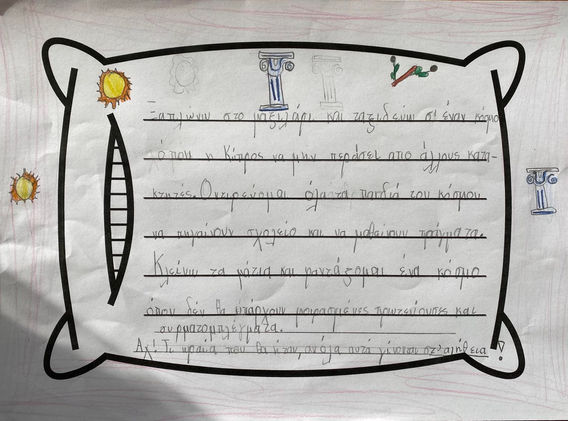 Ξαπλώνω στο μαξιλάρι και ταξιδεύω σ' έναν κόσμο
όπου η Κύπρος να μην περάσει απο άλλους κατα-
κτητές. Ονειρεύομαι όλα τα παιδιά του κόσμου
να πηγαίνουν σχολείο και να μαθαίνουν πράγματα.
Κλείνω τα μάτια και φαντάζομαι ένα κόσμο
όπου δεν θα υπάρχουν μοιρασμένες πρωτεύουσες και
συρματοπλέγματα.
Αχ! Τι ωραία που θα ήταν, αν όλα αυτά γίνονταν στ' αλήθεια !